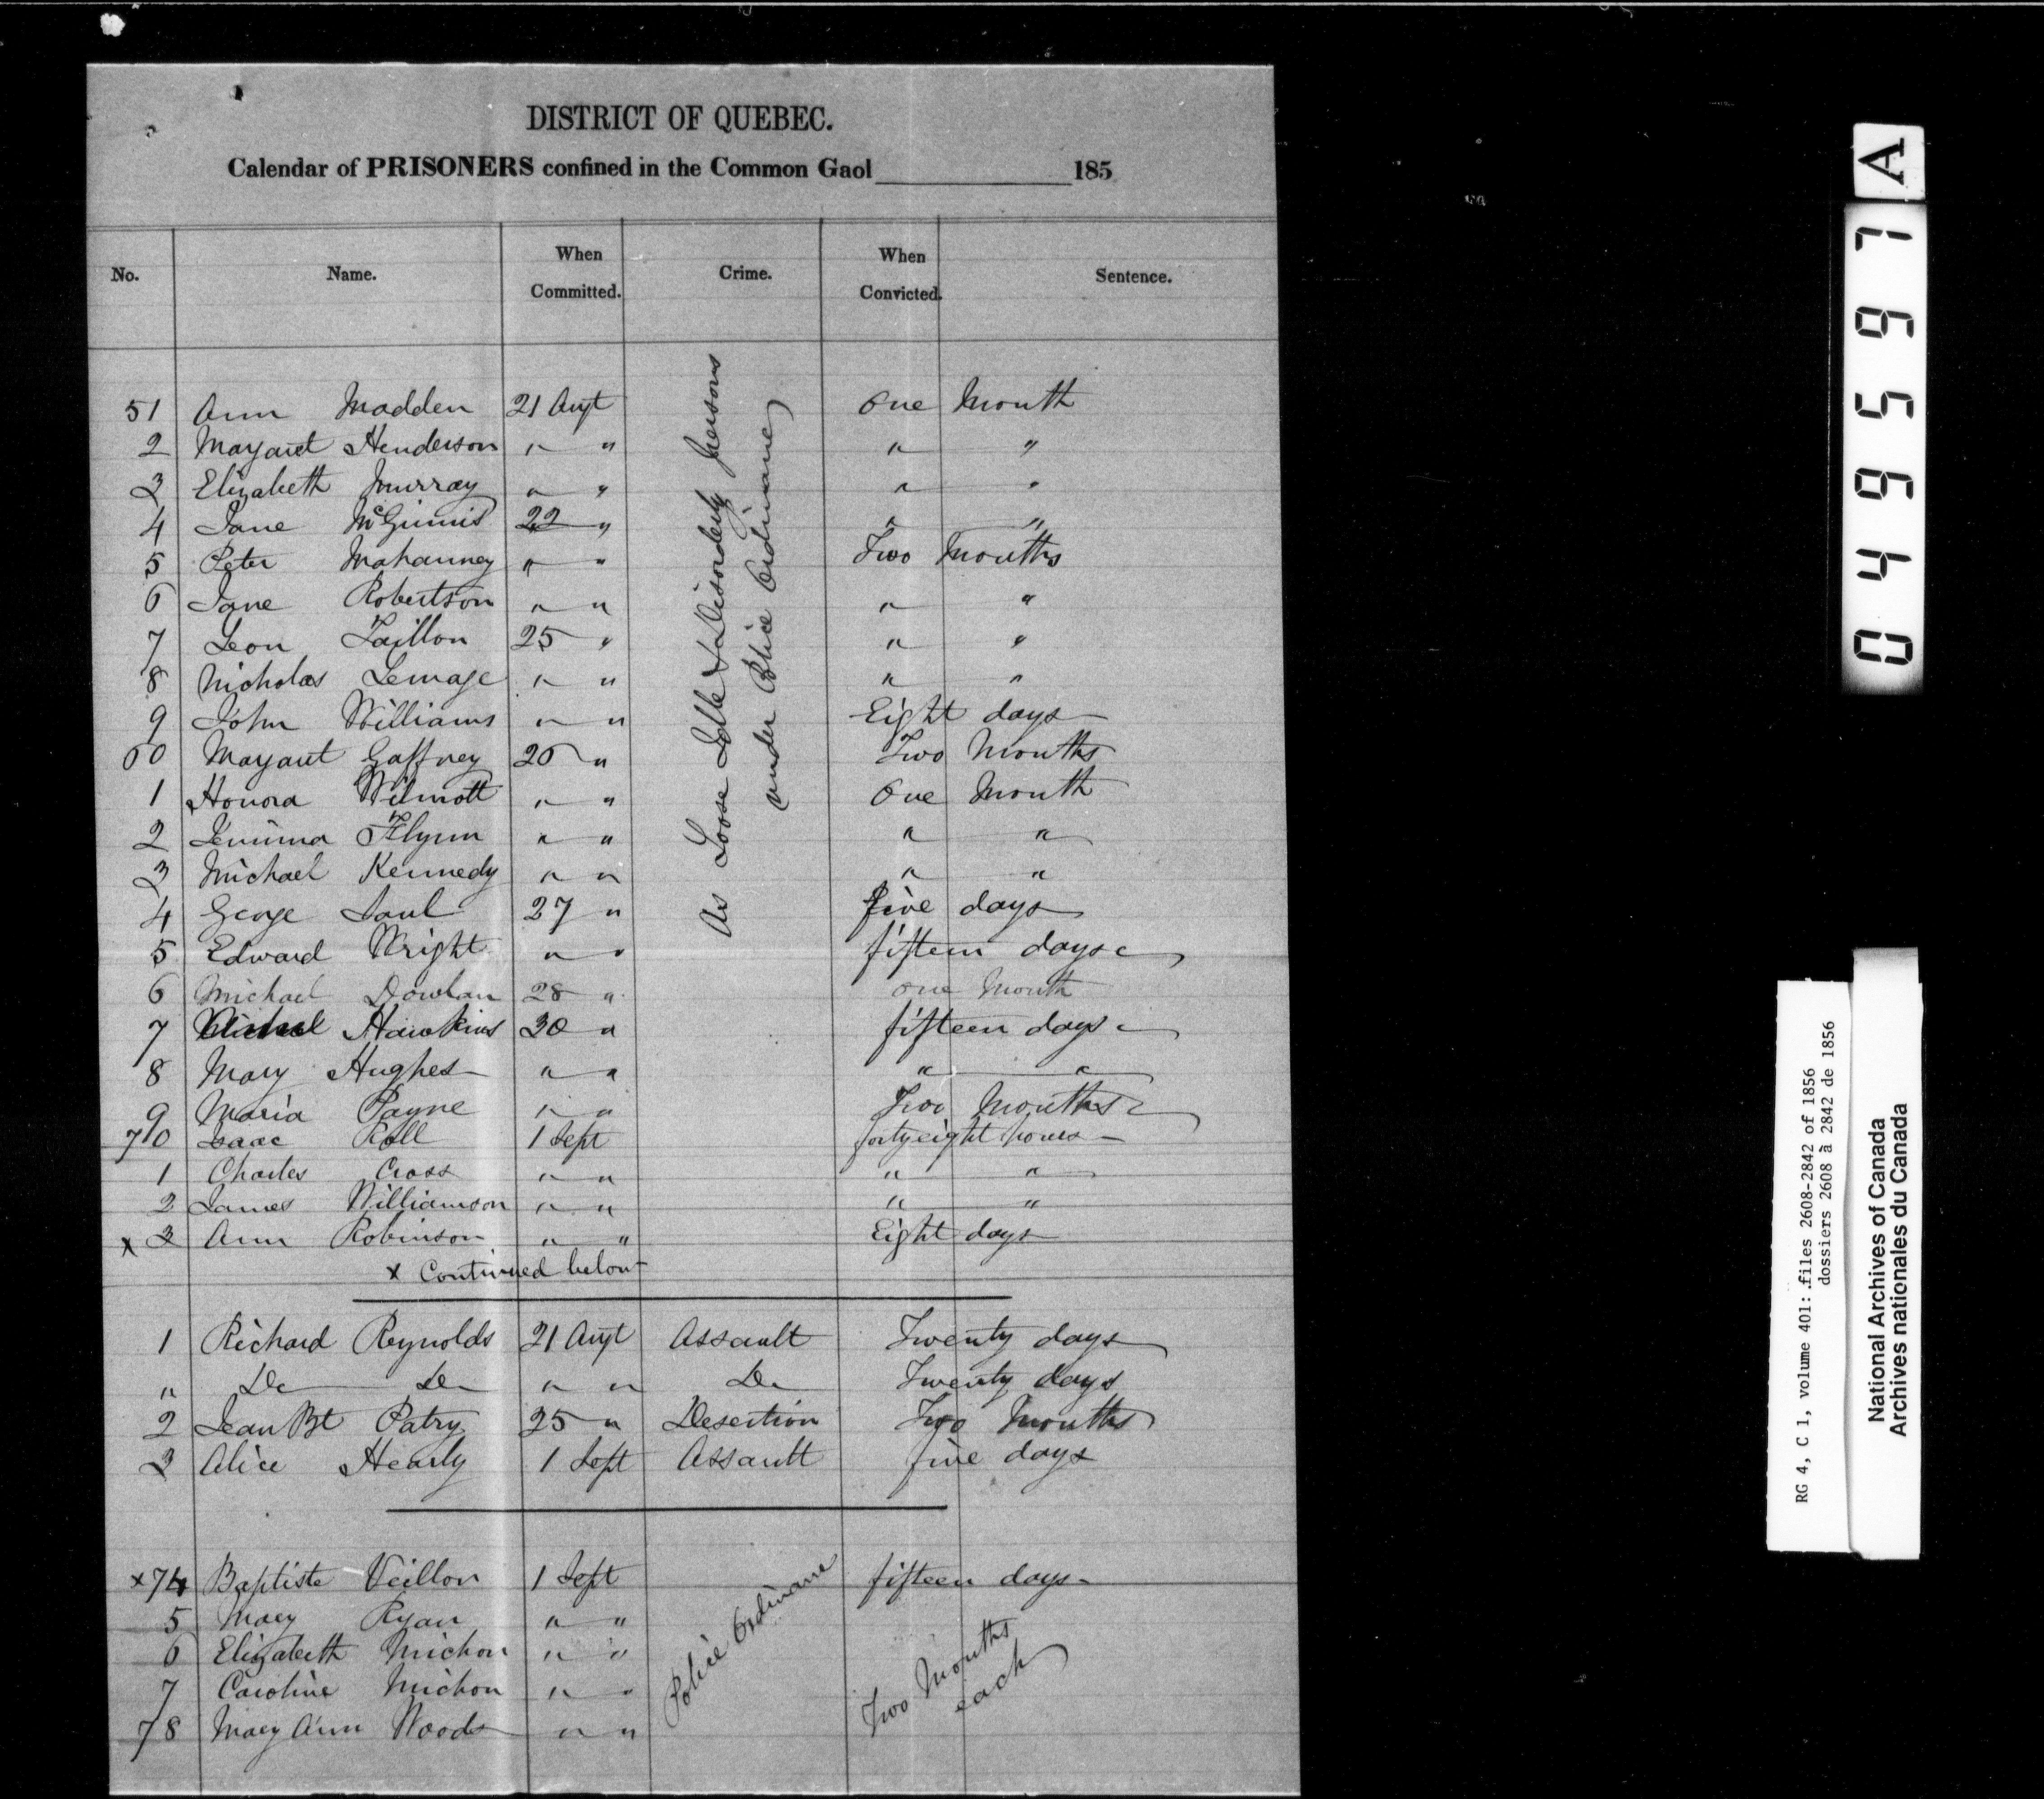 DISTRICT OF QUEBEC.
Calendar of PRISONERS confined in the Common Gaol 185
No. Name. When Committed. Crime. When Convicted. Sentence.
As Loose Idle & Disorderly persons
under Police Ordinance
51 Ann Madden 21 Augt One Month
2 Margaret Henderson " " " "
3 Elizabeth Murray " " " "
4 Jane McGinnis 22 " " "
5 Peter Mahanney " " Two Months
6 Jane Robertson " " " "
7 Leon Taillon 25 " " "
8 Nicholas Lemage " " " "
9 John Williams " " Eight days
60 Margaret Gaffney 26 " Two Months
1 Honora Wilmott " " One Month
2 Jemima Flynn " " " "
3 Michael Kennedy " " " "
4 George Saul 27 " five days
5 Edward Wright " " fifteen days
6 Michael Dowlan 28 " One Month
7 Hawkins 30 " fifteen days
8 Mary Hughes " " " "
9 Maria Payne " " Two Months
70 Isaac Roll 1 Sept forty eight hours
1 Charles Cross " " " "
2 James Williamson " " " "
x 3 Ann Robinson " " Eight days
x Continued below
1 Richard Reynolds 21 Augt Assault Twenty days
" Do Do " " Do Twenty days
2 Jean Bt Patry 25 " Desertion Two Months
3 Alice Hearly 1 Sept Assault five days
x 74 Baptiste Veillon 1 Sept fifteen days
5 Mary Ryan " "
6 Elizabeth Michon " "
7 Caroline Michon " "
78 Mary Ann Woods " "
Police Ordinance
Two Months
each
A
049567
RG 4, C 1, volume 401: files 2608-2842 of 1856
dossiers 2608 à 2842 de 1856
National Archives of Canada
Archives nationales du Canada